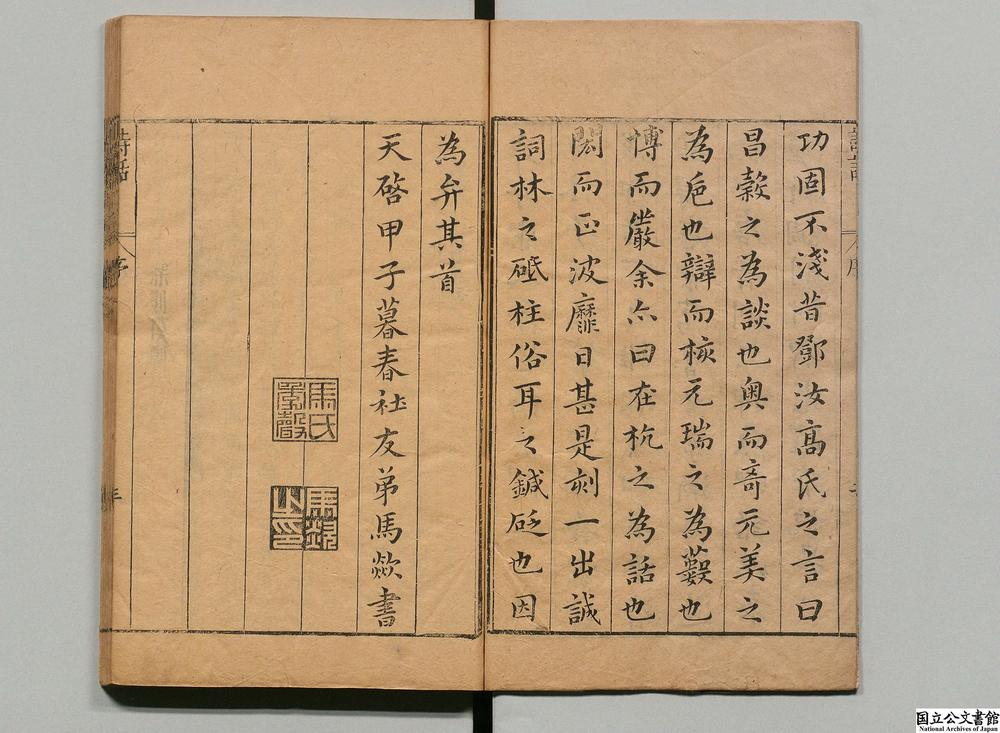 功固不淺昔鄧汝髙氏之言曰
昌穀之為談也奥而竒元美之
為巵也辯而核元瑞之為藪也
博而嚴余亦曰在杭之為話也
閎而正波靡日甚是刻一出誠
詞林之砥柱俗耳之鍼砭也因
為弁其首
天啓甲子暮春社友弟馬歘書
馬氏
季聲
馬歘
之印
詩話
序
国立公文書館
National Archives of Japan